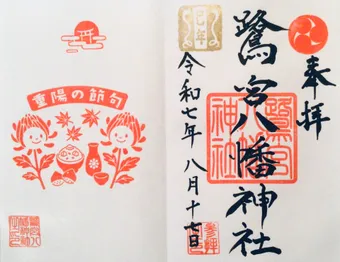 奉拝
鷺宮八幡神社
鷺宮八幡神社
巳年
令和七年 八月十七日
参拝
重陽の節句